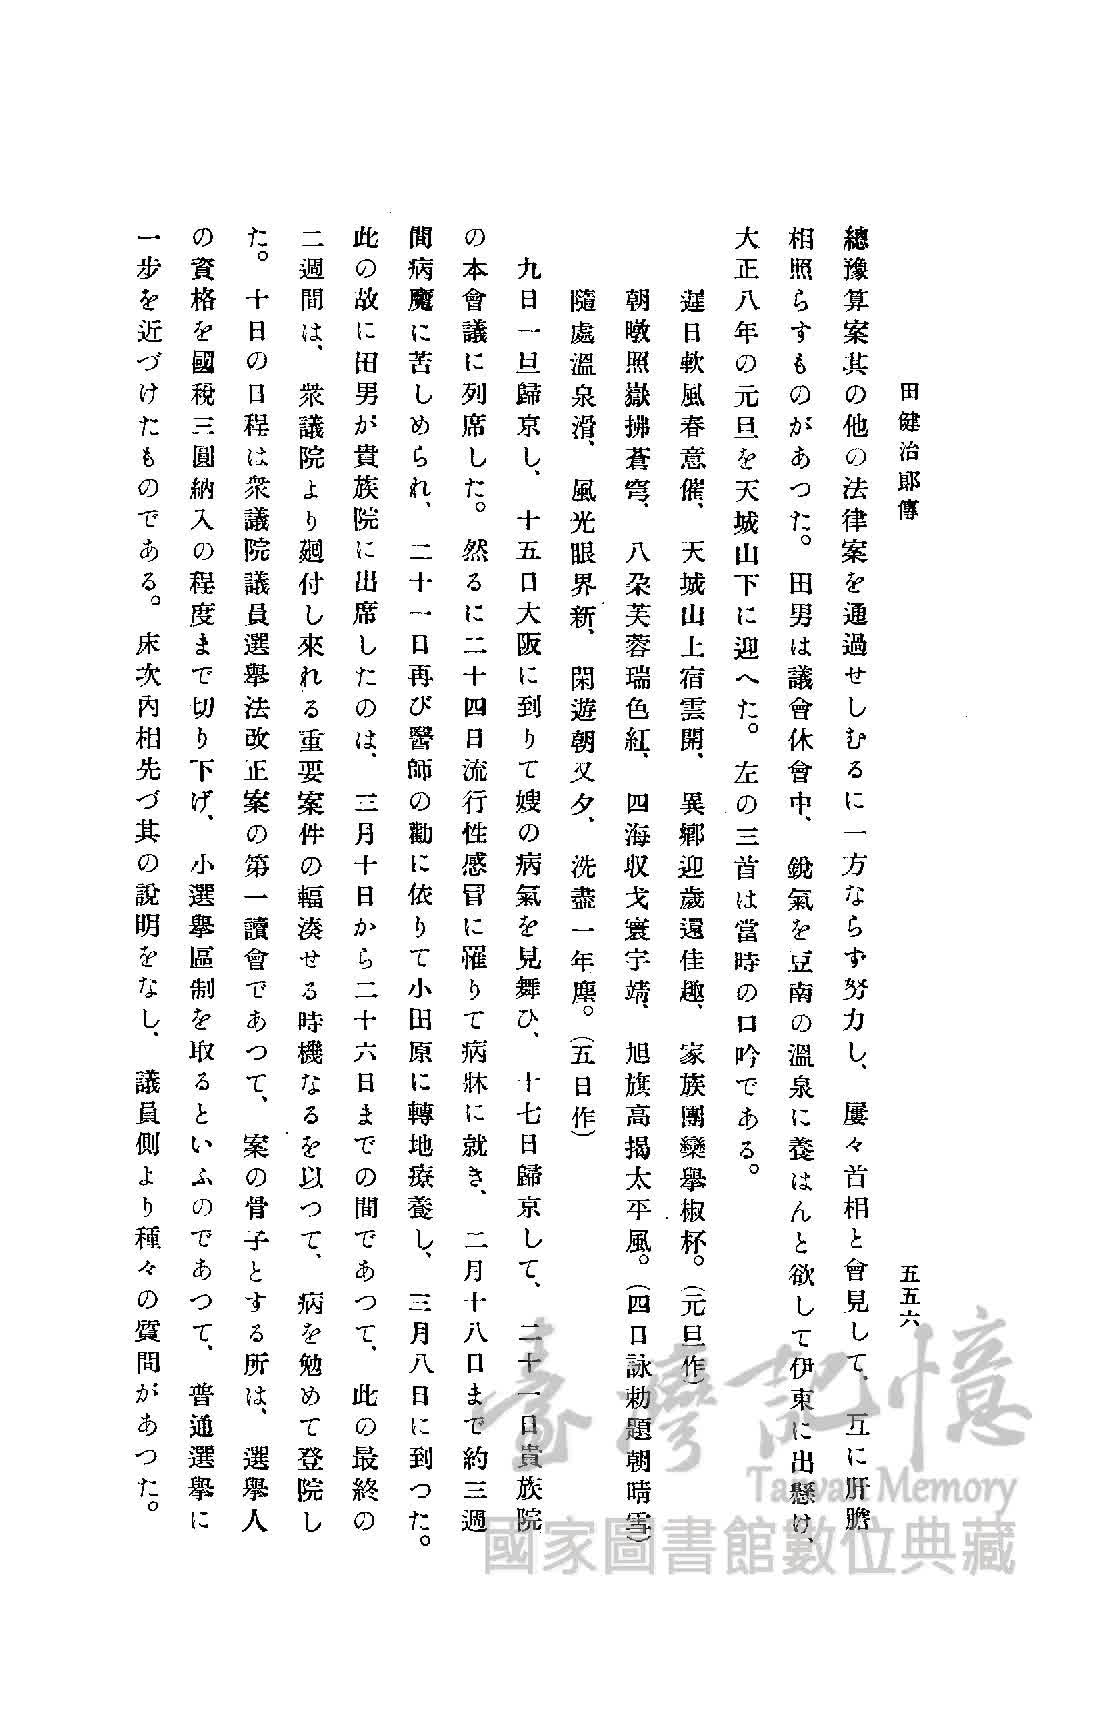 田健治郎傳
五五六
總豫算案其の他の法律案を通過せしむるに一方ならず努力し、屢々首相と會見して、互に肝膽
相照らすものがあつた。田男は議會休會中、銳氣を豆南の溫泉に養はんと欲して伊東に出懸け、
大正八年の元旦を天城山下に迎へた。左の三首は當時の口吟である。
遲日軟風春意催、天城山上宿雲開、異鄉迎歲還佳趣、家族團欒擧椒杯。(元旦作)
朝暾照嶽拂蒼穹、八朶芙蓉瑞色紅、四海収戈寰宇靖、旭旗高揭太平風。(四日詠勅題朝晴雪)
隨處溫泉滑、風光眼界新、閑遊朝又夕、洗盡一年塵。(五日作)
九日一旦歸京し、十五日大阪に到りて嫂の病氣を見舞ひ、十七日歸京して、二十一日貴族院
の本會議に列席した。然るに二十四日流行性感冒に罹りて病牀に就き、二月十八日まで約三週
間病魔に苦しめられ、二十一日再び醫師の勸に依りて小田原に轉地療養し、三月八日に到つた。
此の故に田男が貴族院に出席したのは、三月十日から二十六日までの間であつて、此の最終の
二週間は、衆議院より廻付し來れる重要案件の輻湊せる時機なるを以つて、病を勉めて登院し
た。十日の日程は衆議院議員選擧法改正案の第一讀會であつて、案の骨子とする所は、選擧人
の資格を國稅三圓納入の程度まで切り下げ、小選擧區制を取るといふのであつて、普通選擧に
一步を近づけたものである。床次內相先づ其の說明をなし、議員側より種々の質問があつた。
臺灣記憶
Taiwan Memory
國家圖書館數位典藏